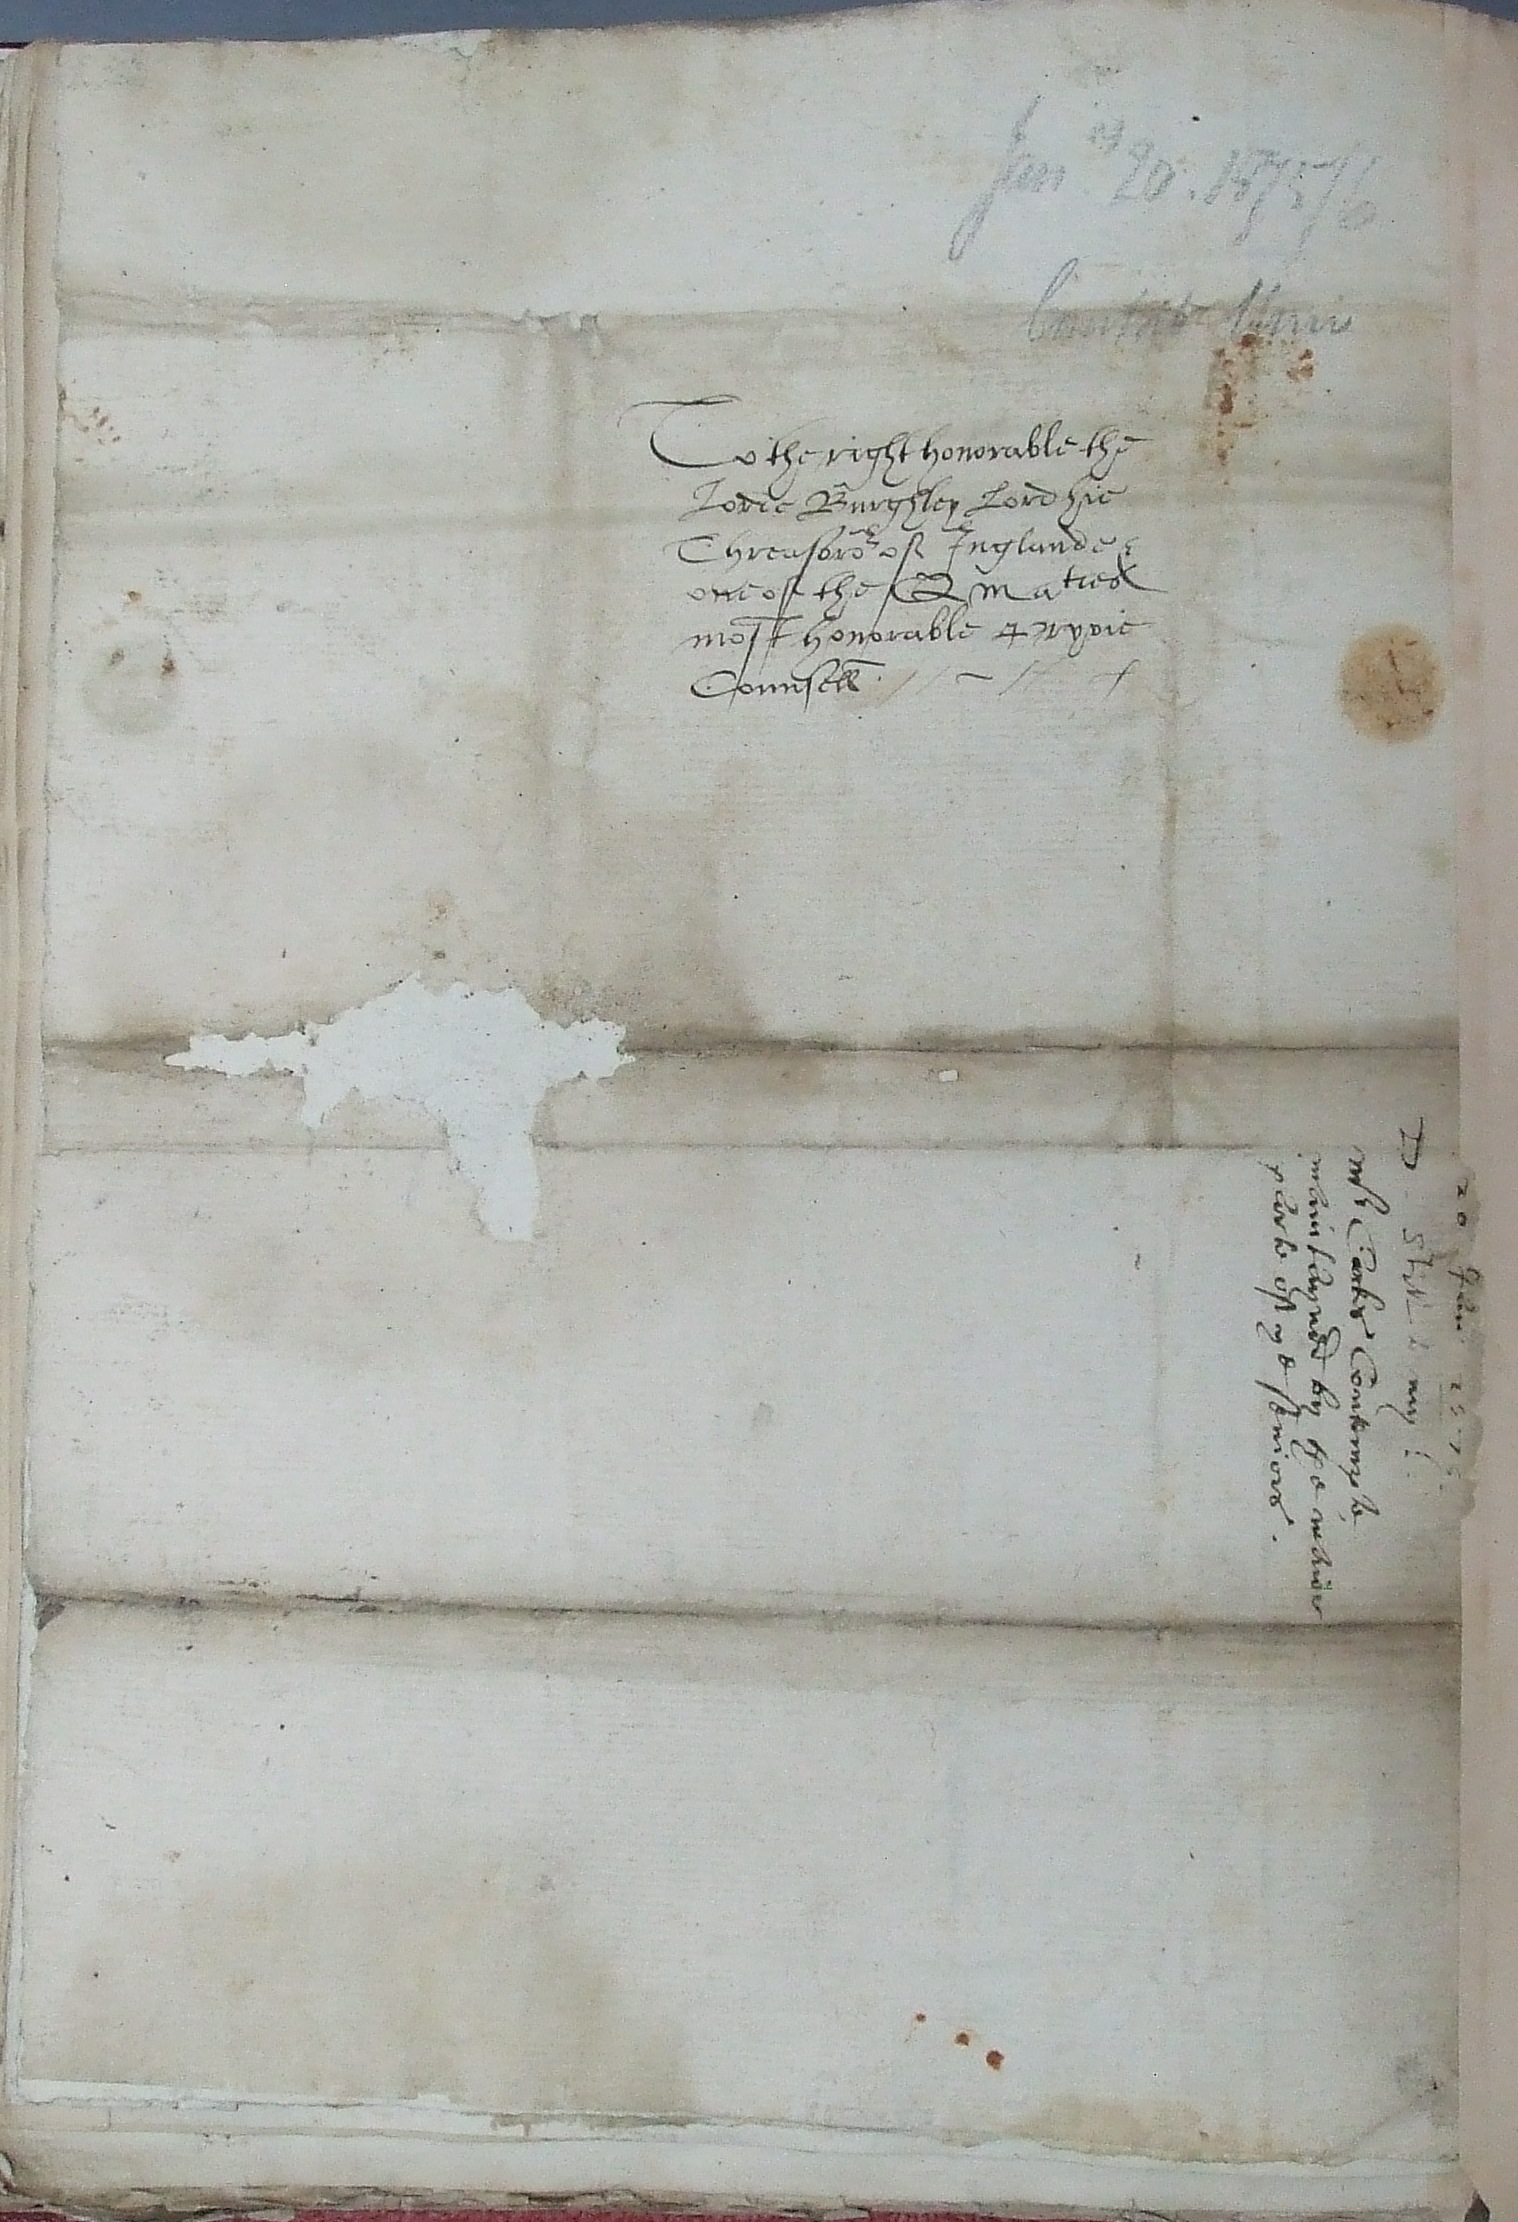 Jan. 20. 1575/6
To the right honorable the
Lorde Burghley Lord hie
Threasoror of Inglande &
one of the Q maties
most honorable pryvie
Counsell
20 Jan 1575
D. Still to my L.
mr Cartes Contempte,
maintayned by ye
parte of ye seniors.